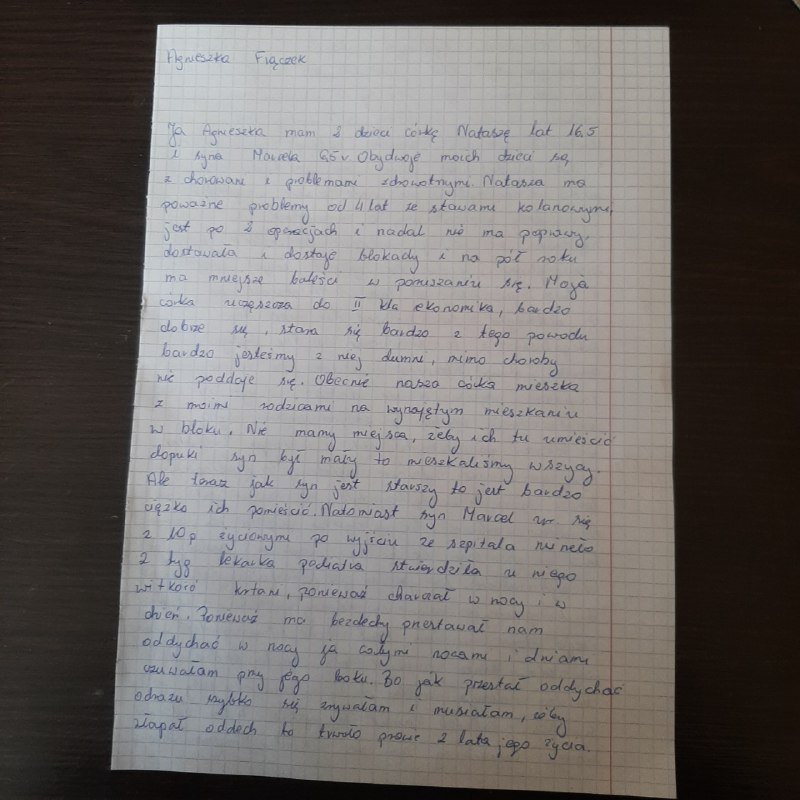 Agnieszka Frączek
Ja Agnieszka mam 2 dzieci córkę Nataszę lat 16,5
i syna Marcela 6,5 r Obydwoje moich dzieci są
z chorowani z problemami zdrowotnymi. Natasza ma
poważne problemy od 4 lat ze stawami kolanowymi,
jest po 2 operacjach i nadal nie ma poprawy,
dostawała i dostaje blokady i na pół roku
ma mniejsze baleści w poruszaniu się. Moja
córka uczęszcza do II kla ekonomika, bardzo
dobrze się, stara się bardzo z tego powodu
bardzo jesteśmy z niej dumni, mimo choroby
nie poddaje się. Obecnie nasza córka mieszka
z moimi rodzicami na wynajętym mieszkaniu
w bloku. Nie mamy miejsca, żeby ich tu umieścić
dopuki syn był mały to mieszkaliśmy wszyscy.
Ale teraz jak syn jest starszy to jest bardzo
ciężko ich pomieścić. Natomiast syn Marcel ur. się
z 10 p życiowymi po wyjściu ze szpitala mineło
2 tyg lekarka pediatra stwierdziła u niego
wiotkość krtani, ponieważ charczał w nocy i w
dzień. Ponieważ ma bezdechy przestawał nam
oddychać w nocy ja całymi nocami i dniami
czuwałam przy jego boku. Bo jak przestał oddychać
odrazu szybko się zrywałam i musiałam, żeby
złapał oddech to trwało prawie 2 lata jego życia.